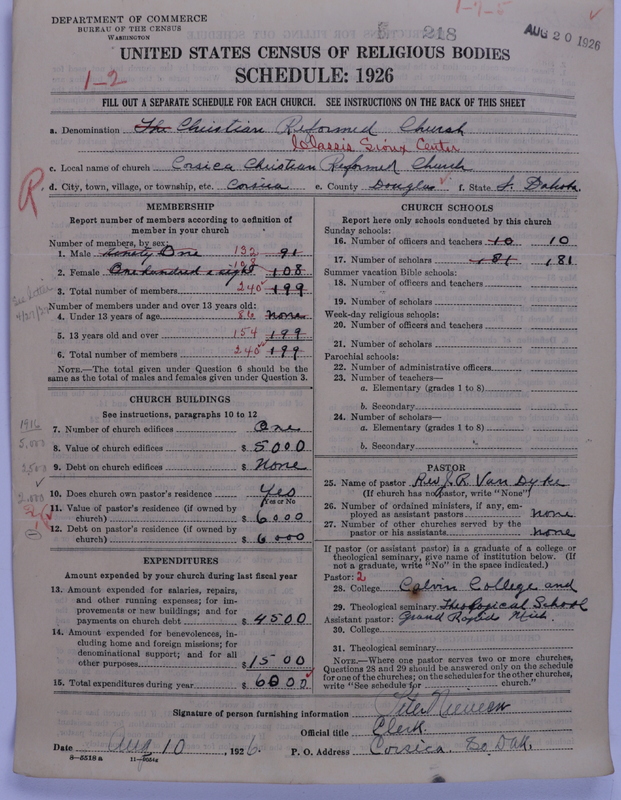 DEPARTMENT OF COMMERCE
BUREAU OF THE CENSUS
WASHINGTON
218
AUG 20 1926
1-7-5
UNITED STATES CENSUS OF RELIGIOUS BODIES
SCHEDULE: 1926
1-2
FILL OUT A SEPARATE SCHEDULE FOR EACH CHURCH. SEE INSTRUCTIONS ON THE BACK OF THIS SHEET
a. Denomination The Christian Reformed Church
Classis Sioux Center
c. Local name of church Corsica Christian Reformed Church
R
d. City, town, village, or township, etc. Corsica e. County Douglas f. State S. Dakota
MEMBERSHIP
Report number of members according to definition of
member in your church
Number of members, by sex:
1. Male ninety One 132 91
2. Female One hundred & eight 108 108
3. Total number of members 240 199
See letter
4/27/27
Number of members under and over 13 years old:
4. Under 13 years of age 86 none
5. 13 years old and over 154 199
6. Total number of members 240 199
NOTE.—The total given under Question 6 should be the
same as the total of males and females given under Question 3.
CHURCH BUILDINGS
See instructions, paragraphs 10 to 12
1916
7. Number of church edifices One
5,000
8. Value of church edifices $ 5000
2500
9. Debt on church edifices $ None
10. Does church own pastor's residence Yes
Yes or No
2,000
11. Value of pastor's residence (if owned by
church) $ 6000
12. Debt on pastor's residence (if owned by
church) $ 6000
EXPENDITURES
Amount expended by your church during last fiscal year
13. Amount expended for salaries, repairs,
and other running expenses; for im-
provements or new buildings; and for
payments on church debt $ 4500
14. Amount expended for benevolences, in-
cluding home and foreign missions; for
denominational support; and for all
other purposes $ 1500
15. Total expenditures during year $ 6000
CHURCH SCHOOLS
Report here only schools conducted by this church
Sunday schools:
16. Number of officers and teachers 10 10
17. Number of scholars 181 181
Summer vacation Bible schools:
18. Number of officers and teachers
19. Number of scholars
Week-day religious schools:
20. Number of officers and teachers
21. Number of scholars
Parochial schools:
22. Number of administrative officers
23. Number of teachers—
a. Elementary (grades 1 to 8)
b. Secondary
24. Number of scholars—
a. Elementary (grades 1 to 8)
b. Secondary
PASTOR
25. Name of pastor Rev J. R. Van Dyke
(If church has no pastor, write "None")
26. Number of ordained ministers, if any, em-
ployed as assistant pastors none
27. Number of other churches served by the
pastor or his assistants none
If pastor (or assistant pastor) is a graduate of a college or
theological seminary, give name of institution below. (If
not a graduate, write "No" in the space indicated.)
Pastor: 2
28. College Calvin College and
29. Theological seminary Theological School
Assistant pastor: Grand Rapids Mich.
30. College
31. Theological seminary
NOTE.—Where one pastor serves two or more churches,
Questions 28 and 29 should be answered only on the schedule
for one of the churches; on the schedules for the other churches,
write "See schedule for church."
Signature of person furnishing information Peter
Official title Clerk
Date Aug 10, 1926. P. O. Address Corsica. So Dak.
8-5518 a